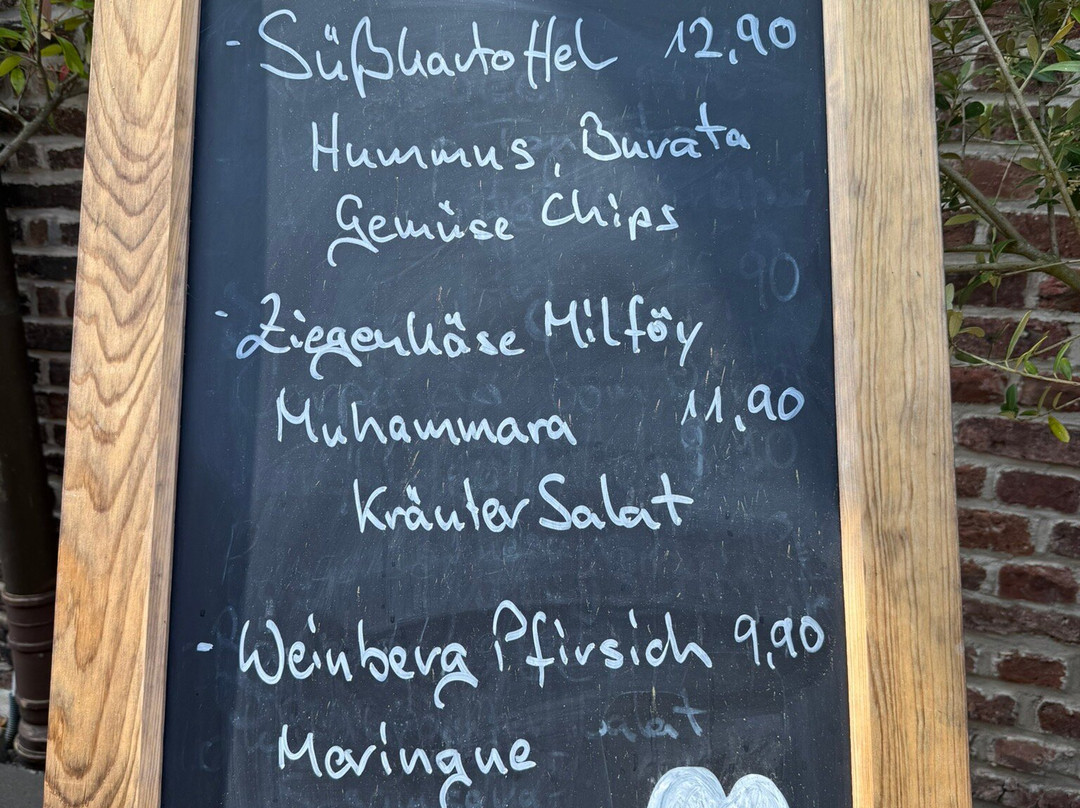 - Süßkartoffel 12,90
Hummus, Burata
Gemüse Chips
- Ziegenkäse Milföy
Muhammara 11,90
Kräuter Salat
- Weinberg Pfirsich 9,90
Meringue